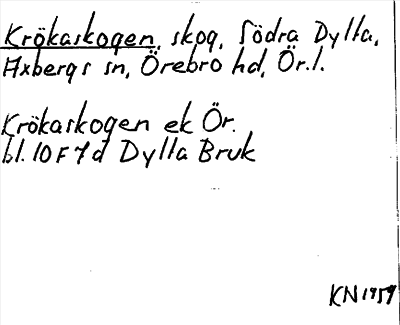 Krökaskogen, skog, Södra Dylta,
Axbergs sn, Örebro hd, Ör.l.
Krökaskogen ek Ör.
bl. 10 F 7 d Dylta Bruk
KN 1959